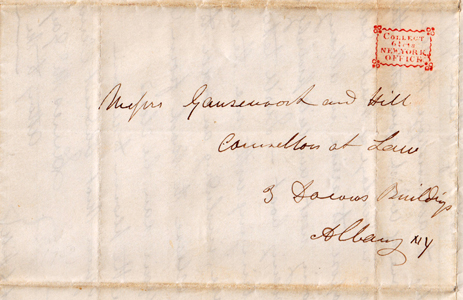 COLLECT
6 cts
NEW YORK
OFFICE.
Messrs Gansevoort and Hill
Counsellors at Law
3 Buildings
Albany NY